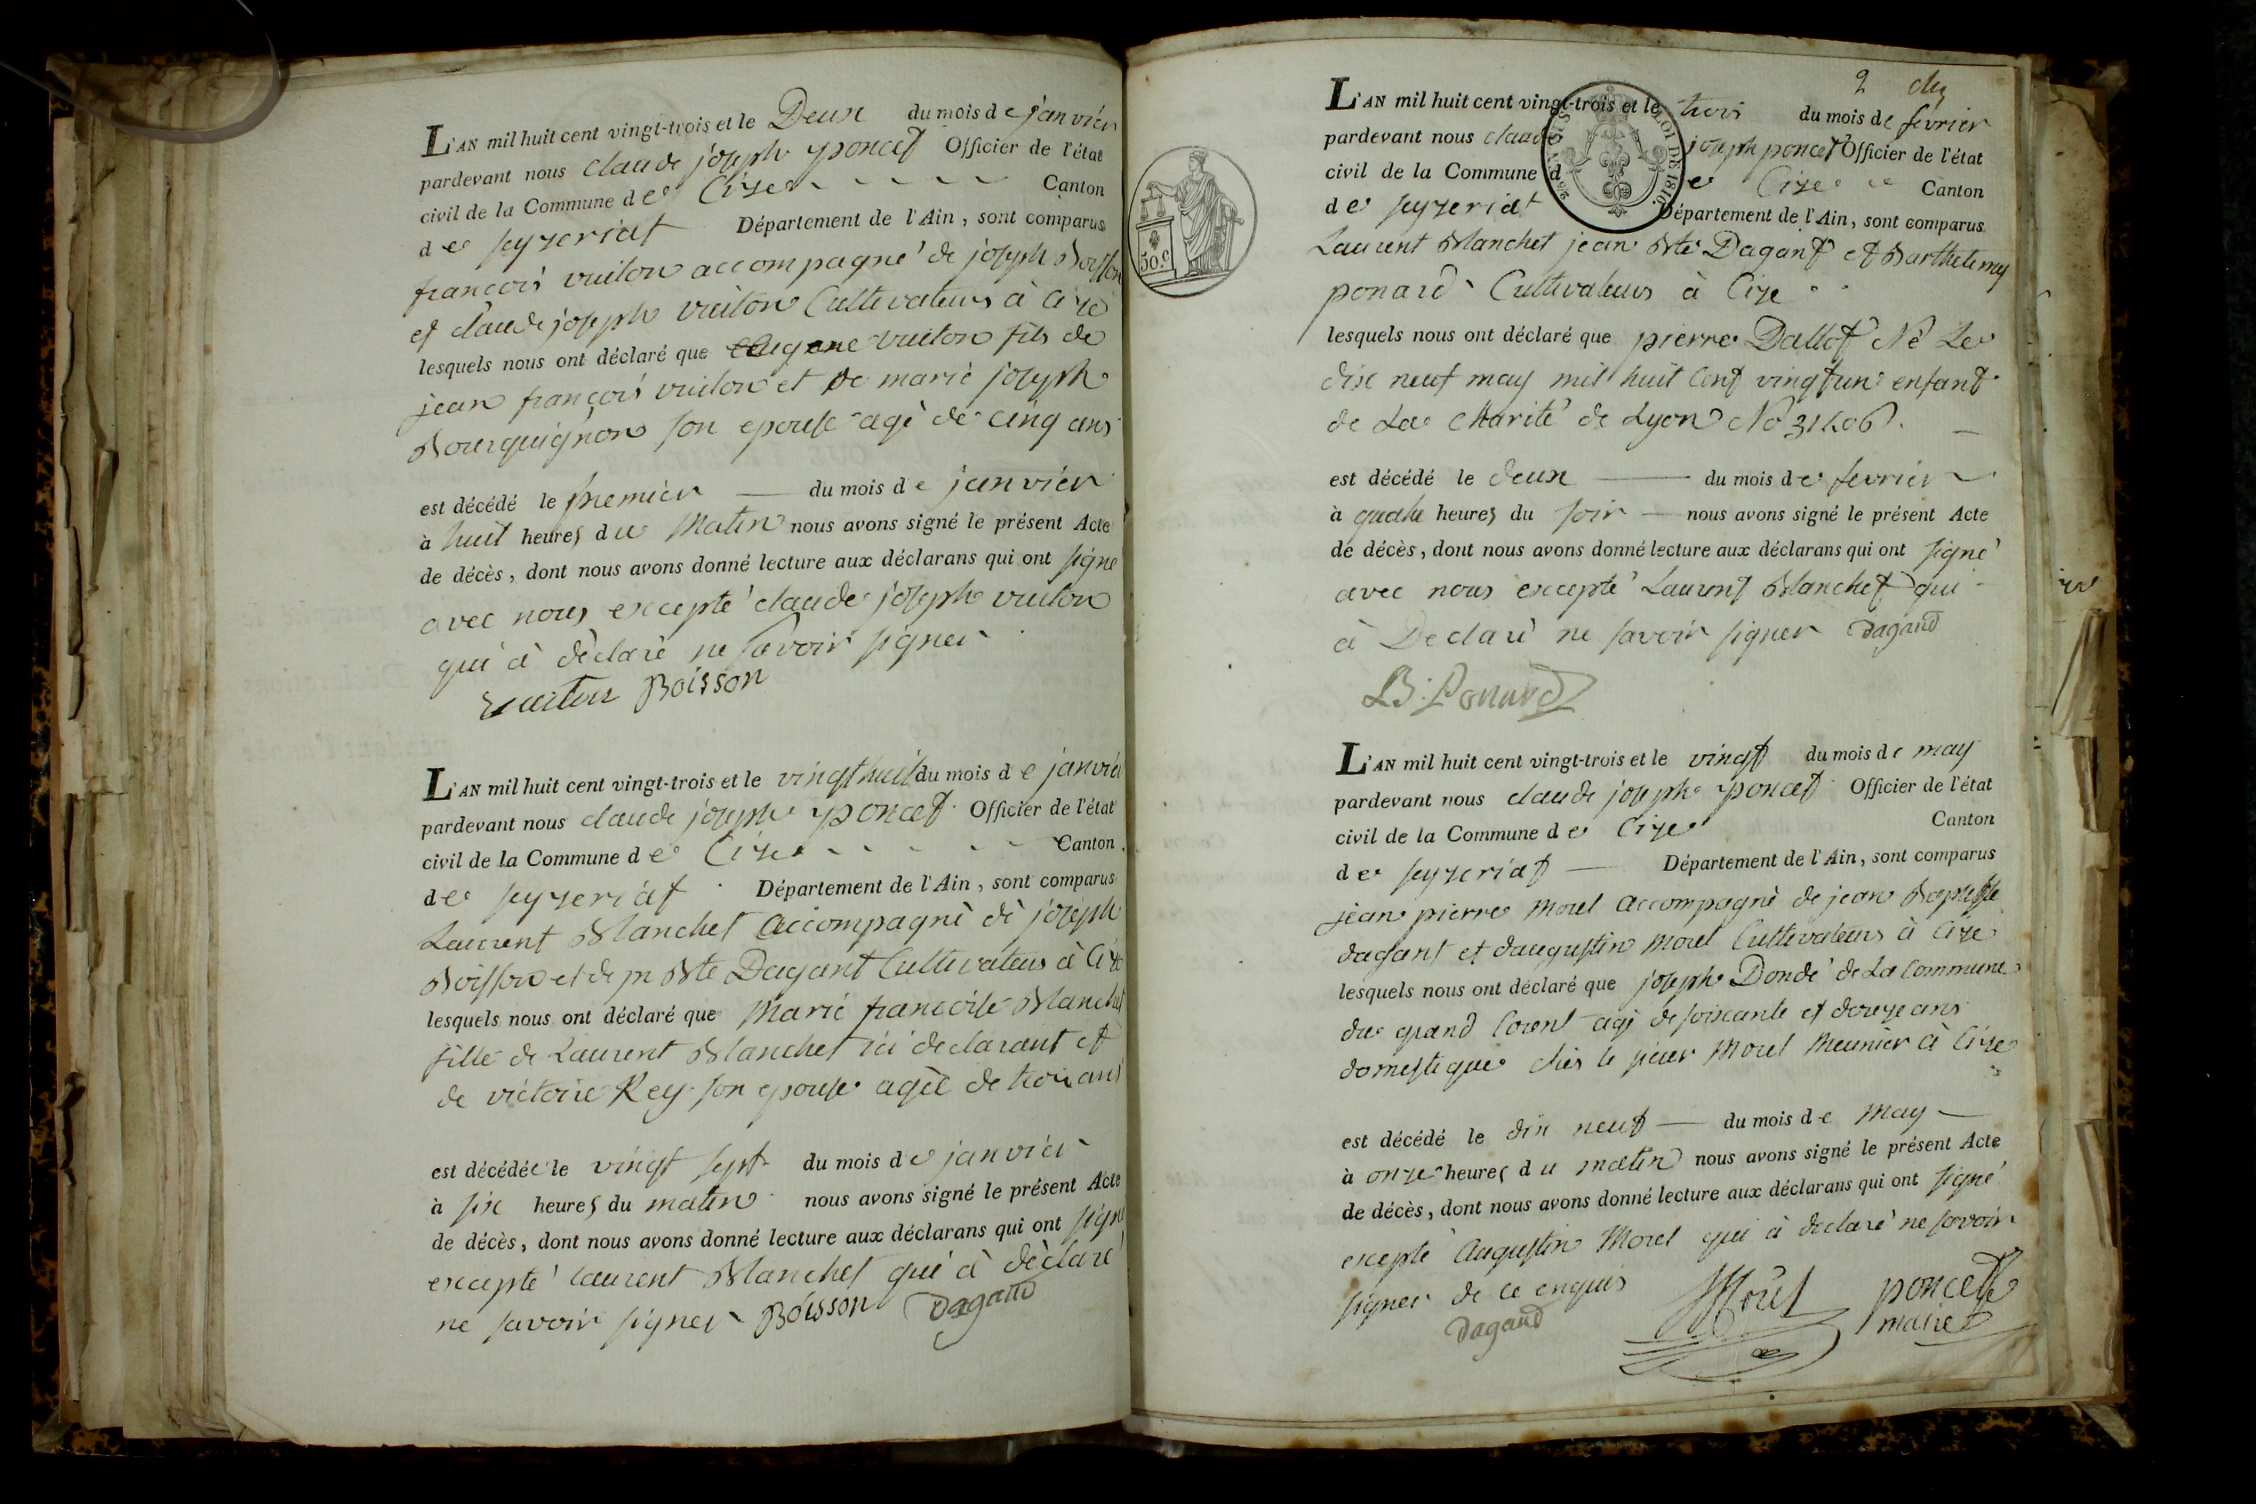 L'AN mil huit cent vingt-trois et le Deux du mois de janvier
pardevant nous claude joseph poncet Officier de l'état
civil de la Commune de Cize Canton
de seyzeriat Département de l'Ain, sont comparus
francois vuiton accompagné de joseph Boisson
et claude joseph vuiton Cultivateurs à Cize
lesquels nous ont déclaré que vuiton fils de
jean francois vuiton et de marie joseph
Bourguignon son epouse agé de cinq ans
est décédé le premier du mois de janvier
à huit heures du Matin nous avons signé le présent Acte
de décès, dont nous avons donné lecture aux déclarans qui ont signé
avec nous excepté claude joseph vuiton
qui à déclaré ne savoir signer
vuiton Boisson
L'AN mil huit cent vingt-trois et le vingt huit du mois de janvier
pardevant nous claude joseph poncet Officier de l'état
civil de la Commune de Cize Canton
de seyzeriat Département de l'Ain, sont comparus
Laurent Blanchet accompagné de joseph
Boisson et de jn Bte Dagant Cultivateurs à Cize
lesquels nous ont déclaré que Marie francoise Blanchet
fille de Laurent Blanchet ici declarant et
de victoire Rey son epouse agée de trois ans
est décédée le vingt sept du mois de janvier
à six heures du matin nous avons signé le présent Acte
de décès, dont nous avons donné lecture aux déclarans qui ont signé
excepté laurent Blanchet qui à déclaré
ne savoir signer Boisson Dagand
50.c
2
L'AN mil huit cent vingt-trois et le trois du mois de février
pardevant nous claude joseph poncet Officier de l'état
civil de la Commune de Cize Canton
de seyzeriat Département de l'Ain, sont comparus
LOI DE 1816.
Laurent Blanchet jean Bte Dagant et Barthelemy
ponard Cultivateurs à Cize
lesquels nous ont déclaré que pierre Dallot Né Le
dix neuf may mil huit Cent vingt un enfant
de La Charité de Lyon No
est décédé le deux du mois de fevrier
à quatre heures du soir nous avons signé le présent Acte
de décès, dont nous avons donné lecture aux déclarans qui ont signé
avec nous excepté Laurent Blanchet qui
à Declaré ne savoir signer Dagand
B. Ponard
L'AN mil huit cent vingt-trois et le vingt du mois de may
pardevant nous claude joseph poncet Officier de l'état
civil de la Commune de Cize Canton
de seyzeriat Département de l'Ain, sont comparus
jean pierre Morel accompagné de jean Baptiste
dagant et daugustin Morel Cultivateurs à Cize
lesquels nous ont déclaré que joseph Dondé de La Commune
du grand Corent agé de soixante et douze ans
domestique chés le sieur Morel Meunier à Cize
est décédé le dix neuf du mois de May
à onze heures du matin nous avons signé le présent Acte
de décès, dont nous avons donné lecture aux déclarans qui ont signé
excepté Augustin Morel qui à declaré ne savoir
signer de ce enquis Morel poncet
Dagand maire